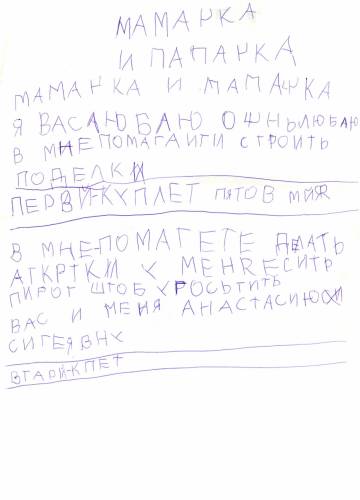 МАМАНКА
И ПАПАНКА
МАМАНКА И ПАПАНКА
Я ВАС ЛЮБАЮ ОЧНЬ ЛЮБАЮ
В МНЕ ПОМАГАИТИ СТРОИТЬ
ПОДЕЛКИ
ПЕРВЙ-КУПЛЕТ ПЯТОВ МИЯ
В МНЕ-ПОМАГЕТЕ ДЕЛАТЬ
АТКРТКИ У МЕНЯ ЕСИТЬ
ПИРОГ ШТОБ УРОСЬТИТЬ
ВАС И МЕНЯ АНАСТАСИЮ
СИГЕЯВНУ
ВТАРЙ-КПЕТ